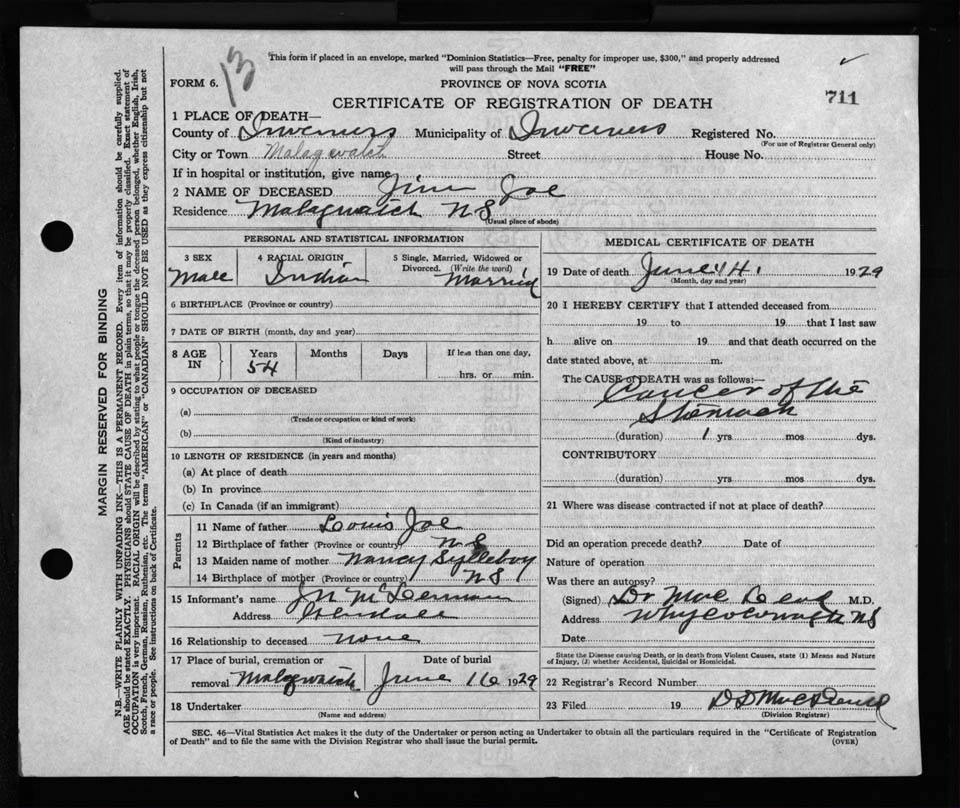 This form if placed in an envelope, marked "Dominion Statistics—Free, penalty for improper use, $300," and properly addressed
will pass through the Mail "FREE"
FORM 6. PROVINCE OF NOVA SCOTIA
CERTIFICATE OF REGISTRATION OF DEATH 711
1 PLACE OF DEATH—
County of Inverness Municipality of Inverness Registered No.
(For use of Registrar General only)
City or Town Malagawatch Street House No.
If in hospital or institution, give name
2 NAME OF DECEASED Jim Joe
Residence Malagwatch NS
(Usual place of abode)
PERSONAL AND STATISTICAL INFORMATION
3 SEX 4 RACIAL ORIGIN 5 Single, Married, Widowed or Divorced. (Write the word)
Male Indian Married
6 BIRTHPLACE (Province or country)
7 DATE OF BIRTH (month, day and year)
8 AGE IN Years Months Days If less than one day,
54 hrs. or min.
9 OCCUPATION OF DECEASED
(a)
(Trade or occupation or kind of work)
(b)
(Kind of industry)
10 LENGTH OF RESIDENCE (in years and months)
(a) At place of death
(b) In province
(c) In Canada (if an immigrant)
Parents
11 Name of father Louis Joe
12 Birthplace of father (Province or country) NS
13 Maiden name of mother Nancy Sylleboy
14 Birthplace of mother (Province or country) NS
15 Informant's name
Address
16 Relationship to deceased None
17 Place of burial, cremation or Date of burial
removal Malagwatch June 16 1929
18 Undertaker
(Name and address)
MEDICAL CERTIFICATE OF DEATH
19 Date of death June 14. 1929
(Month, day and year)
20 I HEREBY CERTIFY that I attended deceased from
19 to 19 that I last saw
h alive on 19 and that death occurred on the
date stated above, at m.
The CAUSE of DEATH was as follows:—
Cancer of the
Stomach
(duration) 1 yrs mos dys.
CONTRIBUTORY
(duration) yrs mos dys.
21 Where was disease contracted if not at place of death?
Did an operation precede death? Date of
Nature of operation
Was there an autopsy?
(Signed) Dr M.D.
Address Whycocomagh NS
Date
State the Disease causing Death, or in death from Violent Causes, state (1) Means and Nature
of Injury, (2) whether Accidental, Suicidal or Homicidal.
22 Registrar's Record Number
23 Filed 19
(Division Registrar)
SEC. 46—Vital Statistics Act makes it the duty of the Undertaker or person acting as Undertaker to obtain all the particulars required in the "Certificate of Registration
of Death" and to file the same with the Division Registrar who shall issue the burial permit. (OVER)
MARGIN RESERVED FOR BINDING
N.B.—WRITE PLAINLY WITH UNFADING INK—THIS IS A PERMANENT RECORD. Every item of information should be carefully supplied.
AGE should be stated EXACTLY. PHYSICIANS should STATE CAUSE OF DEATH in plain terms, so that it may be properly classified. Exact statement of
OCCUPATION is very important. RACIAL ORIGIN will be described by stating to what people or tongue the deceased person belonged, whether English, Irish,
Scotch, French, German, Russian, Ruthenian, etc. The terms "AMERICAN" or "CANADIAN" SHOULD NOT BE USED as they express citizenship but not
a race or people. See instructions on back of Certificate.